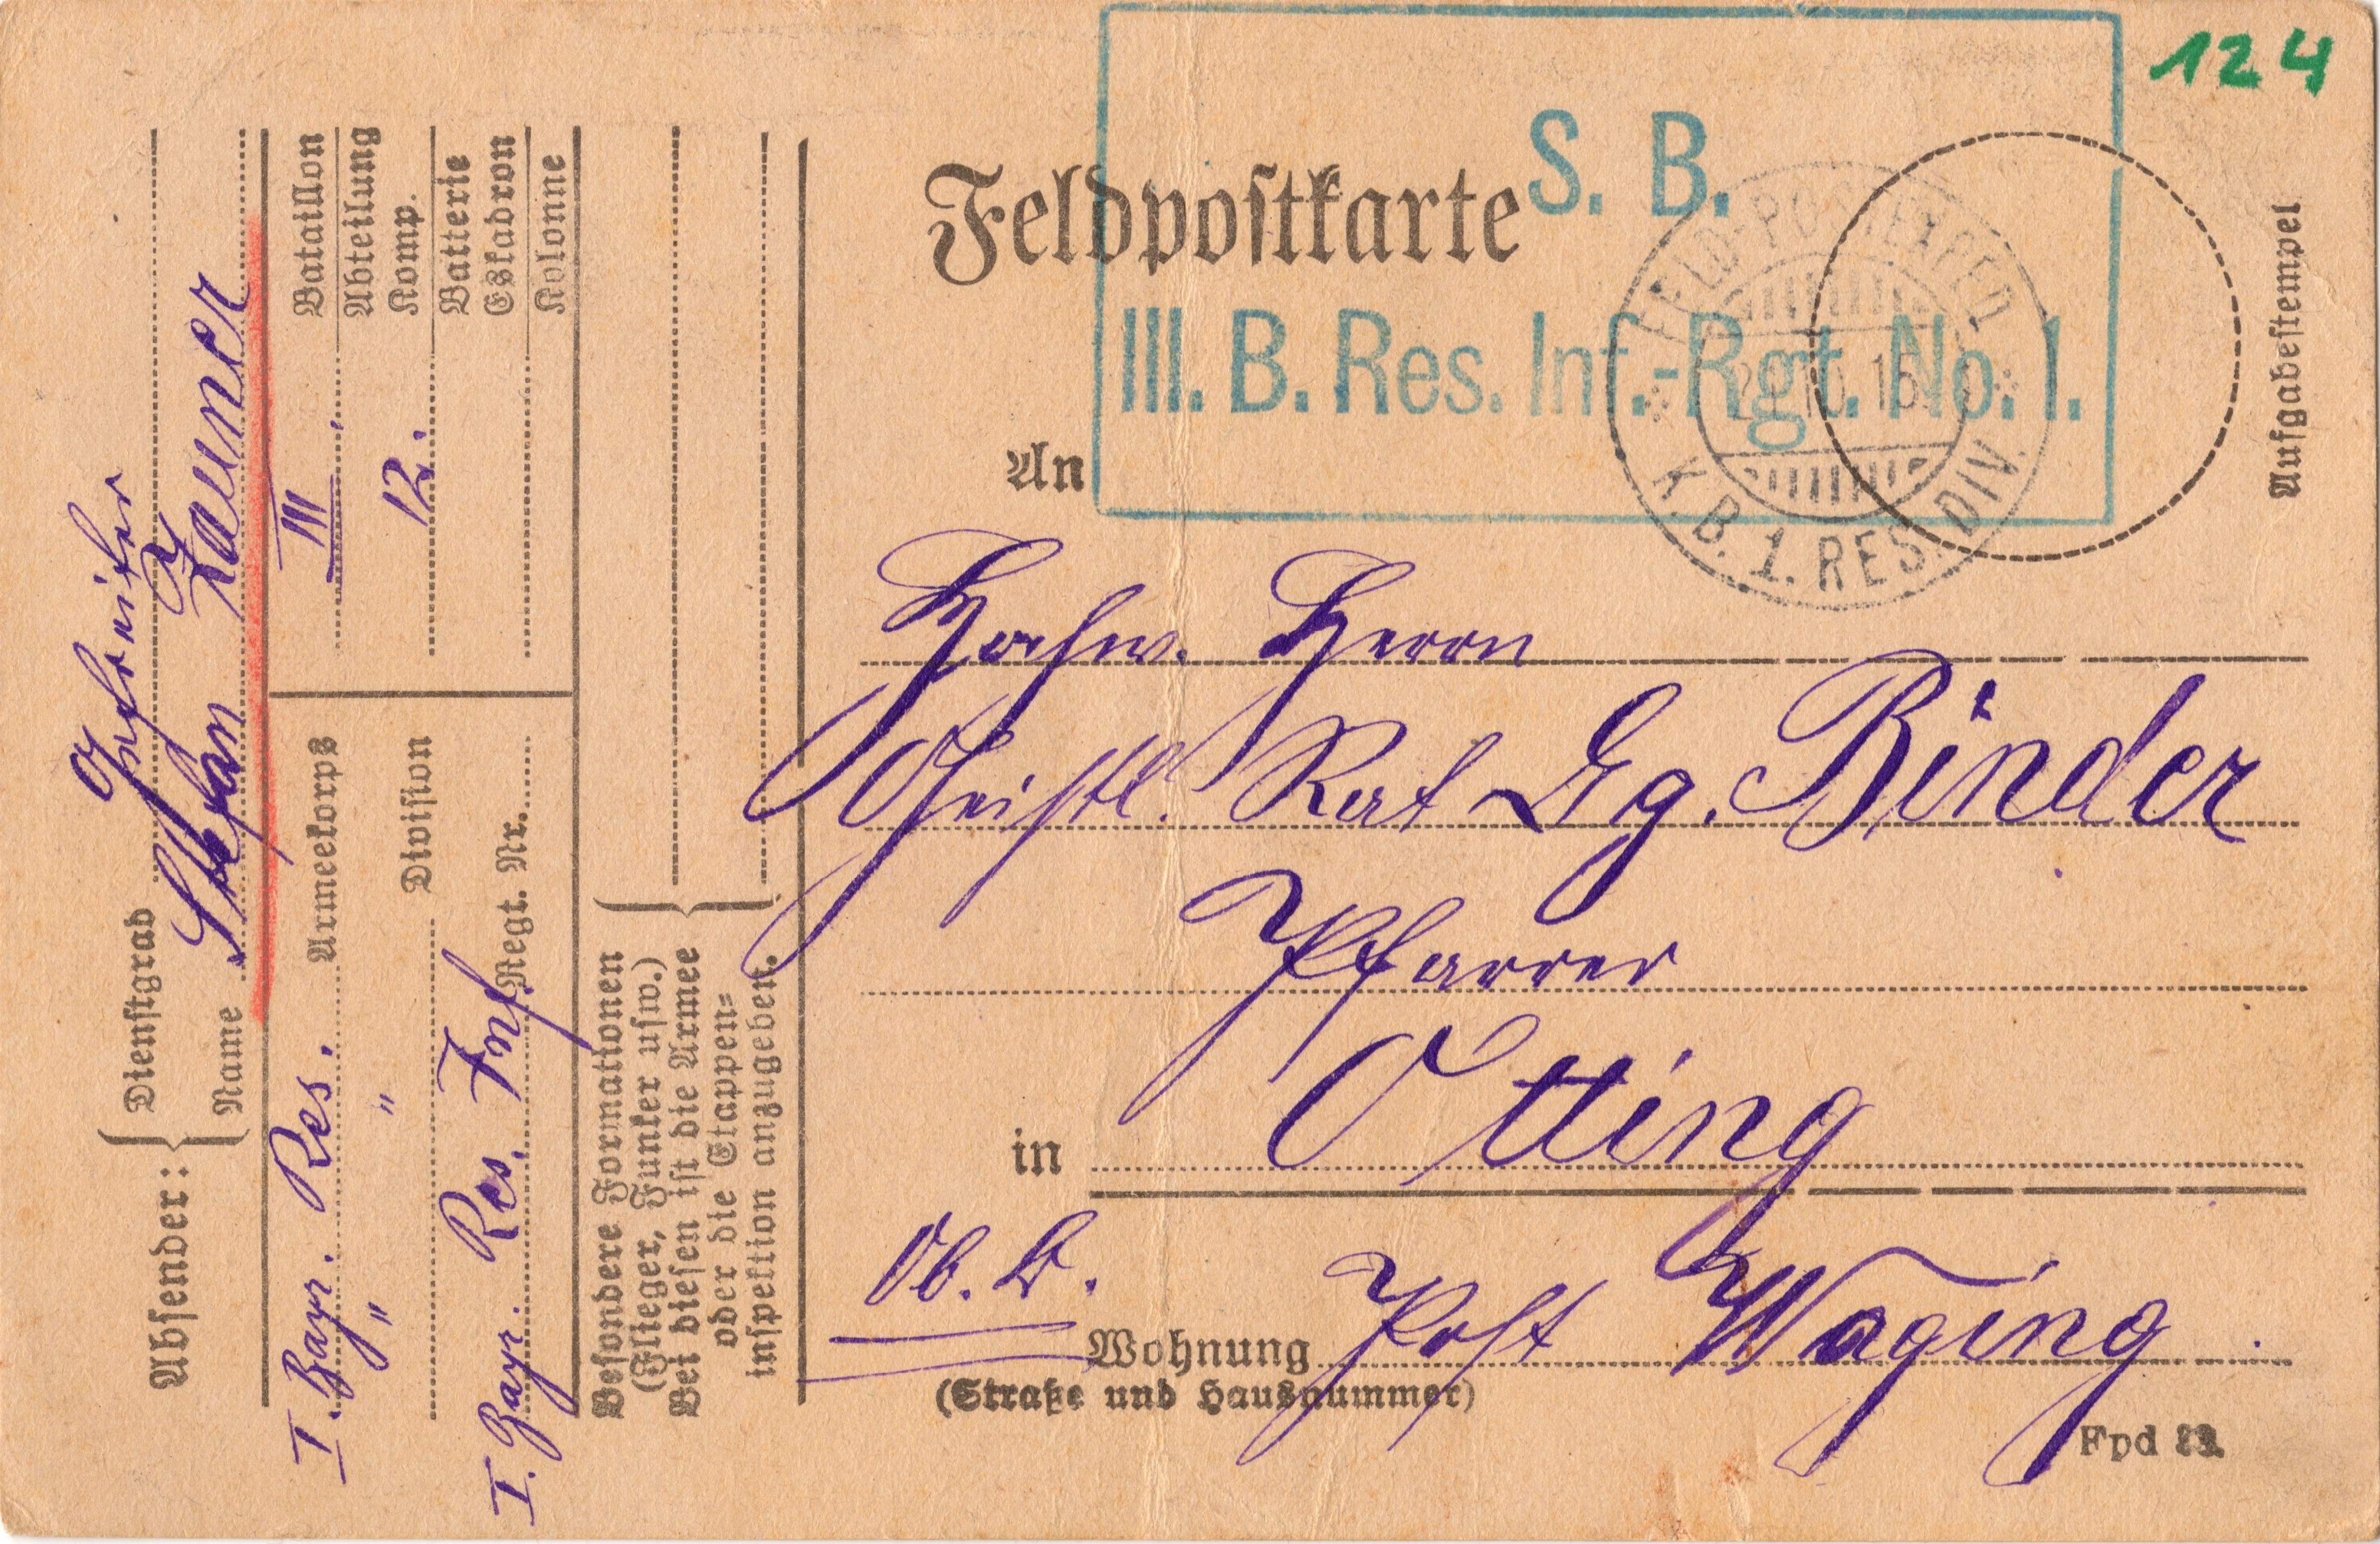 124
S. B.
III. B. Res. Inf.-Rgt. No. 1.
Feldpostkarte
FELD-POSTEXPED.
K. B. 1. RES. DIV.
Aufgabestempel
An
Hochw. Herrn
Geistl. Rat Gg. Binder
Pfarrer
in Otting
Ob. B.
Wohnung Post Waging
(Straße und Hausnummer)
Fpd
Absender:
Dienstgrad Gefreiter
Name Stefan Zauner
I. Bayr. Res. Armeekorps
" " Division
I. Bayr. Res. Inf. Regt. Nr.
III. Bataillon
Abteilung
12. Komp.
Batterie
Eskadron
Kolonne
Besondere Formationen
(Flieger, Funker usw.)
Bei diesen ist die Armee
oder die Etappen=
inspektion anzugeben.